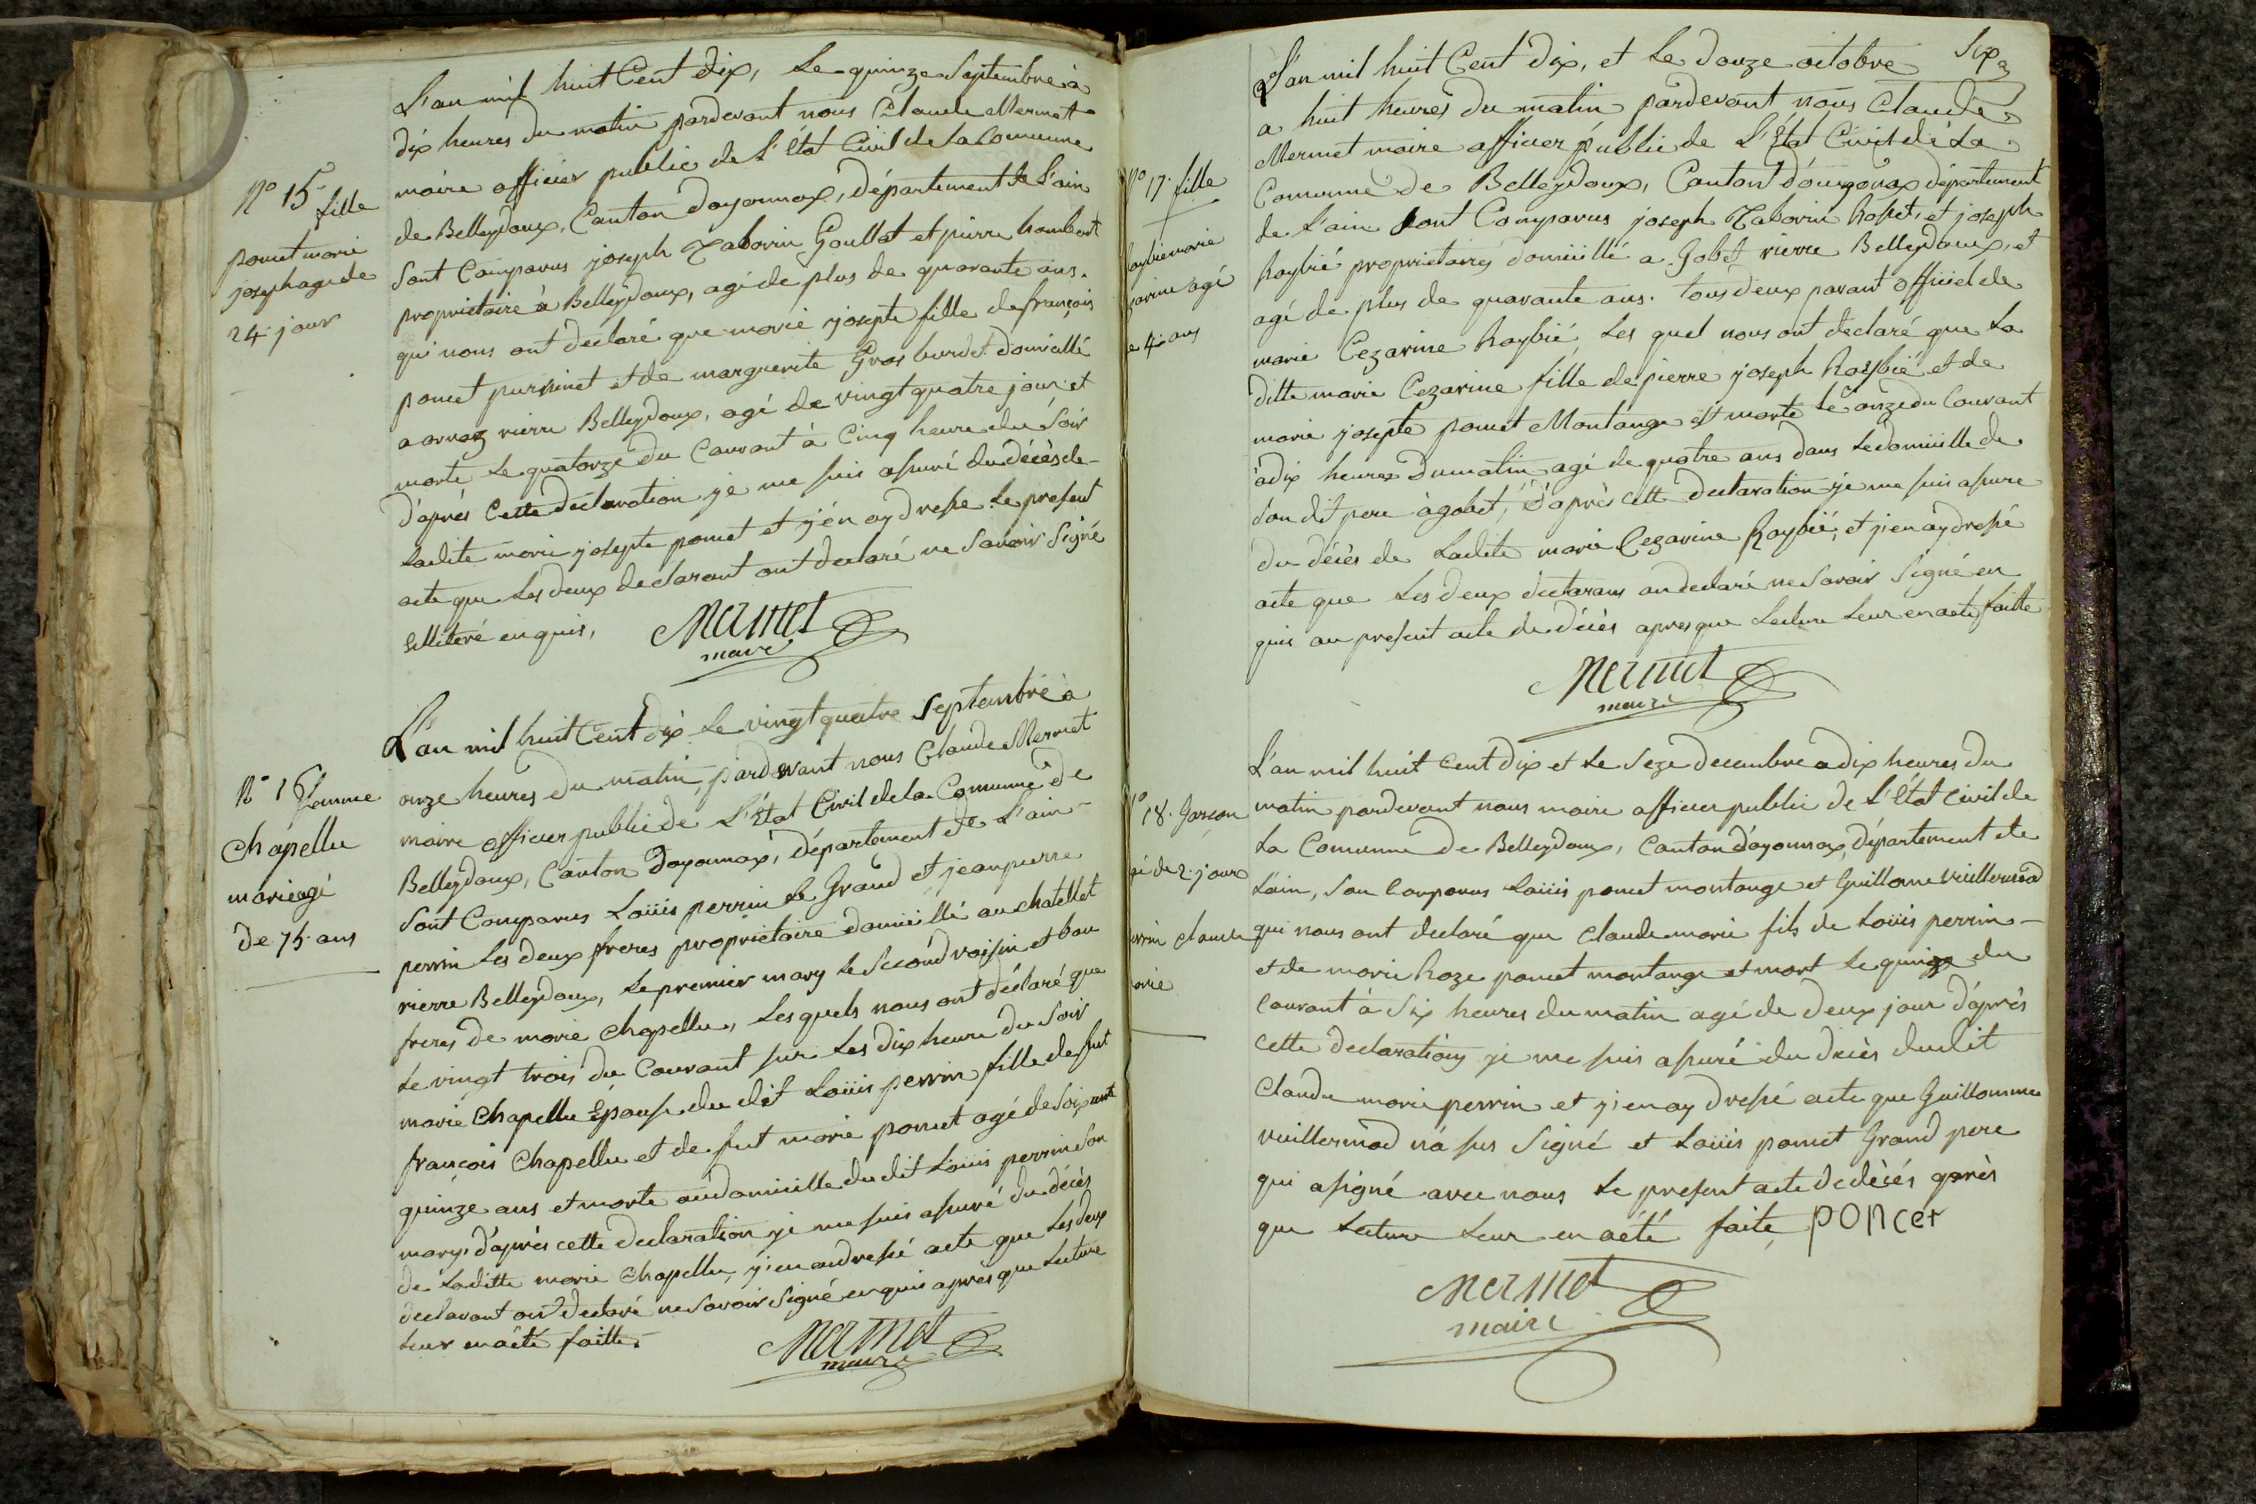 N° 15 fille
pomet marie
joseph agé de
24. jour
L'an mil huit Cent dix, Le quinze Septembre à
dix heures du matin pardevant nous Claude Mermet
maire officier public de L'État Civil de la Commune
de Belleydoux, Canton doyonnax, département de L'ain
Sont Comparus joseph Tabovin Goullat et pierre humbert
proprietaire à Belleydoux, agé de plus de quarante ans.
qui nous ont déclaré que marie josepte fille de françois
pomet et de marguerite Gros burdet domicillé
a orvaz rierre Belleydoux, agé de vingt quatre jour et
morte Le quatorze du Courant à Cinq heure du Soir
d'aprés Cette déclaration je me suis assuré du décès de
Ladite marie josepte pomet et j'én ay dressé Le present
acte que Les deux declarant ont declaré ne Savoir Signé
enquis,
Mermet
maire
N° 16 femme
Chapellu
marie agé
de 75. ans
L'an mil huit Cent dix Le vingt quatre Septembre à
onze heures du matin, pardevant nous Claude Mermet
maire officier public de L'État Civil de la Comune de
Belleydoux, Canton doyonnax, département de L'ain
Sont Comparus Loüis perrin Le Grand et jeanpierre
perrin Les deux freres proprietaire domicillé au chatellet
rierre Belleydoux, Le premier mary Le Second voisin et bau
freres de marie Chapellu, Lesquels nous ont déclaré que
Le vingt trois du Courant sur Les dix heure du Soir
marie Chapellu Épouse du dit Loüis perrin fille de fut
françois Chapellu et de fut marie pomet agé de Soixante
quinze ans et morte au domicille du dit Loüis perrin Son
mary, d'aprés cette declaration je me suis assuré du décès
de Laditte marie Chapellu, j'en ai dressé acte que Les deux
declarant ont declaré ne Savoir Signé enquis aprés que Lecture
Leur en a été faitte.
Mermet
maire
Six
N° 17. fille
marie
agé
de 4. ans
L'an mil huit Cent dix, et Le douze octobre
a huit heures du matin pardevant nous Claude
Mermet maire officier public de L'État Civil de La
Comune de Belleydoux, Canton d'oyonax département
de L'ain Sont Comparus joseph Tabovin hosset, et joseph
haybié proprietaires domicillé a Gobet rierre Belleydoux, et
agé de plus de quarante ans. tous deux parant officiel de
marie Cezarine haybié Les quel nous ont declaré que La
ditte marie Cezarine fille de pierre joseph haybié et de
marie josepte pomet Montange est morte Le onze du Courant
à dix heures du matin agé de quatre ans dans Le domicille de
Son dit pere à gobet, d'aprés Cette declaration je me suis assure
du décès de Ladite marie Cezarine Raybié, et j'en ay dressé
acte que Les deux declarans on declaré ne Savoir Signé en
quis au present acte de décès apres que Lecture Leur en a été faitte
Mermet
maire
N° 18. Garcon
agé de 2. jours
perrin claude
marie
L'an mil huit Cent dix et Le Seze decembre a dix heures du
matin pardevant nous maire officier public de L'État Civil de
La Comune de Belleydoux, Canton d'oyonnax, département de
L'ain, Son Comparus Loüis pomet montange et Guillome Vuillermod
qui nous ont declaré que Claude marie fils de Loüis perrin
et de marie hoze pomet montange et mort Le quinze du
Courant à Six heures du matin agé de deux jour d'aprés
cette declaration je me suis assuré du décès dudit
Claude marie perrin et j'en ay dressé acte que Guillomme
vuillermod n'a sus Signé et Loüis pomet Grand pere
qui a signé avec nous Le present acte de décés aprés
que Lecture Leur en a été faite PONCET
Mermet
maire